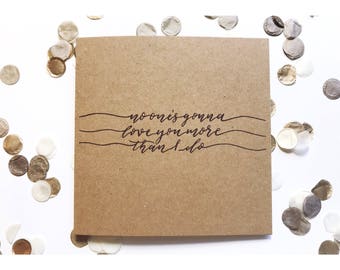 no one's gonna
love you more
than I do